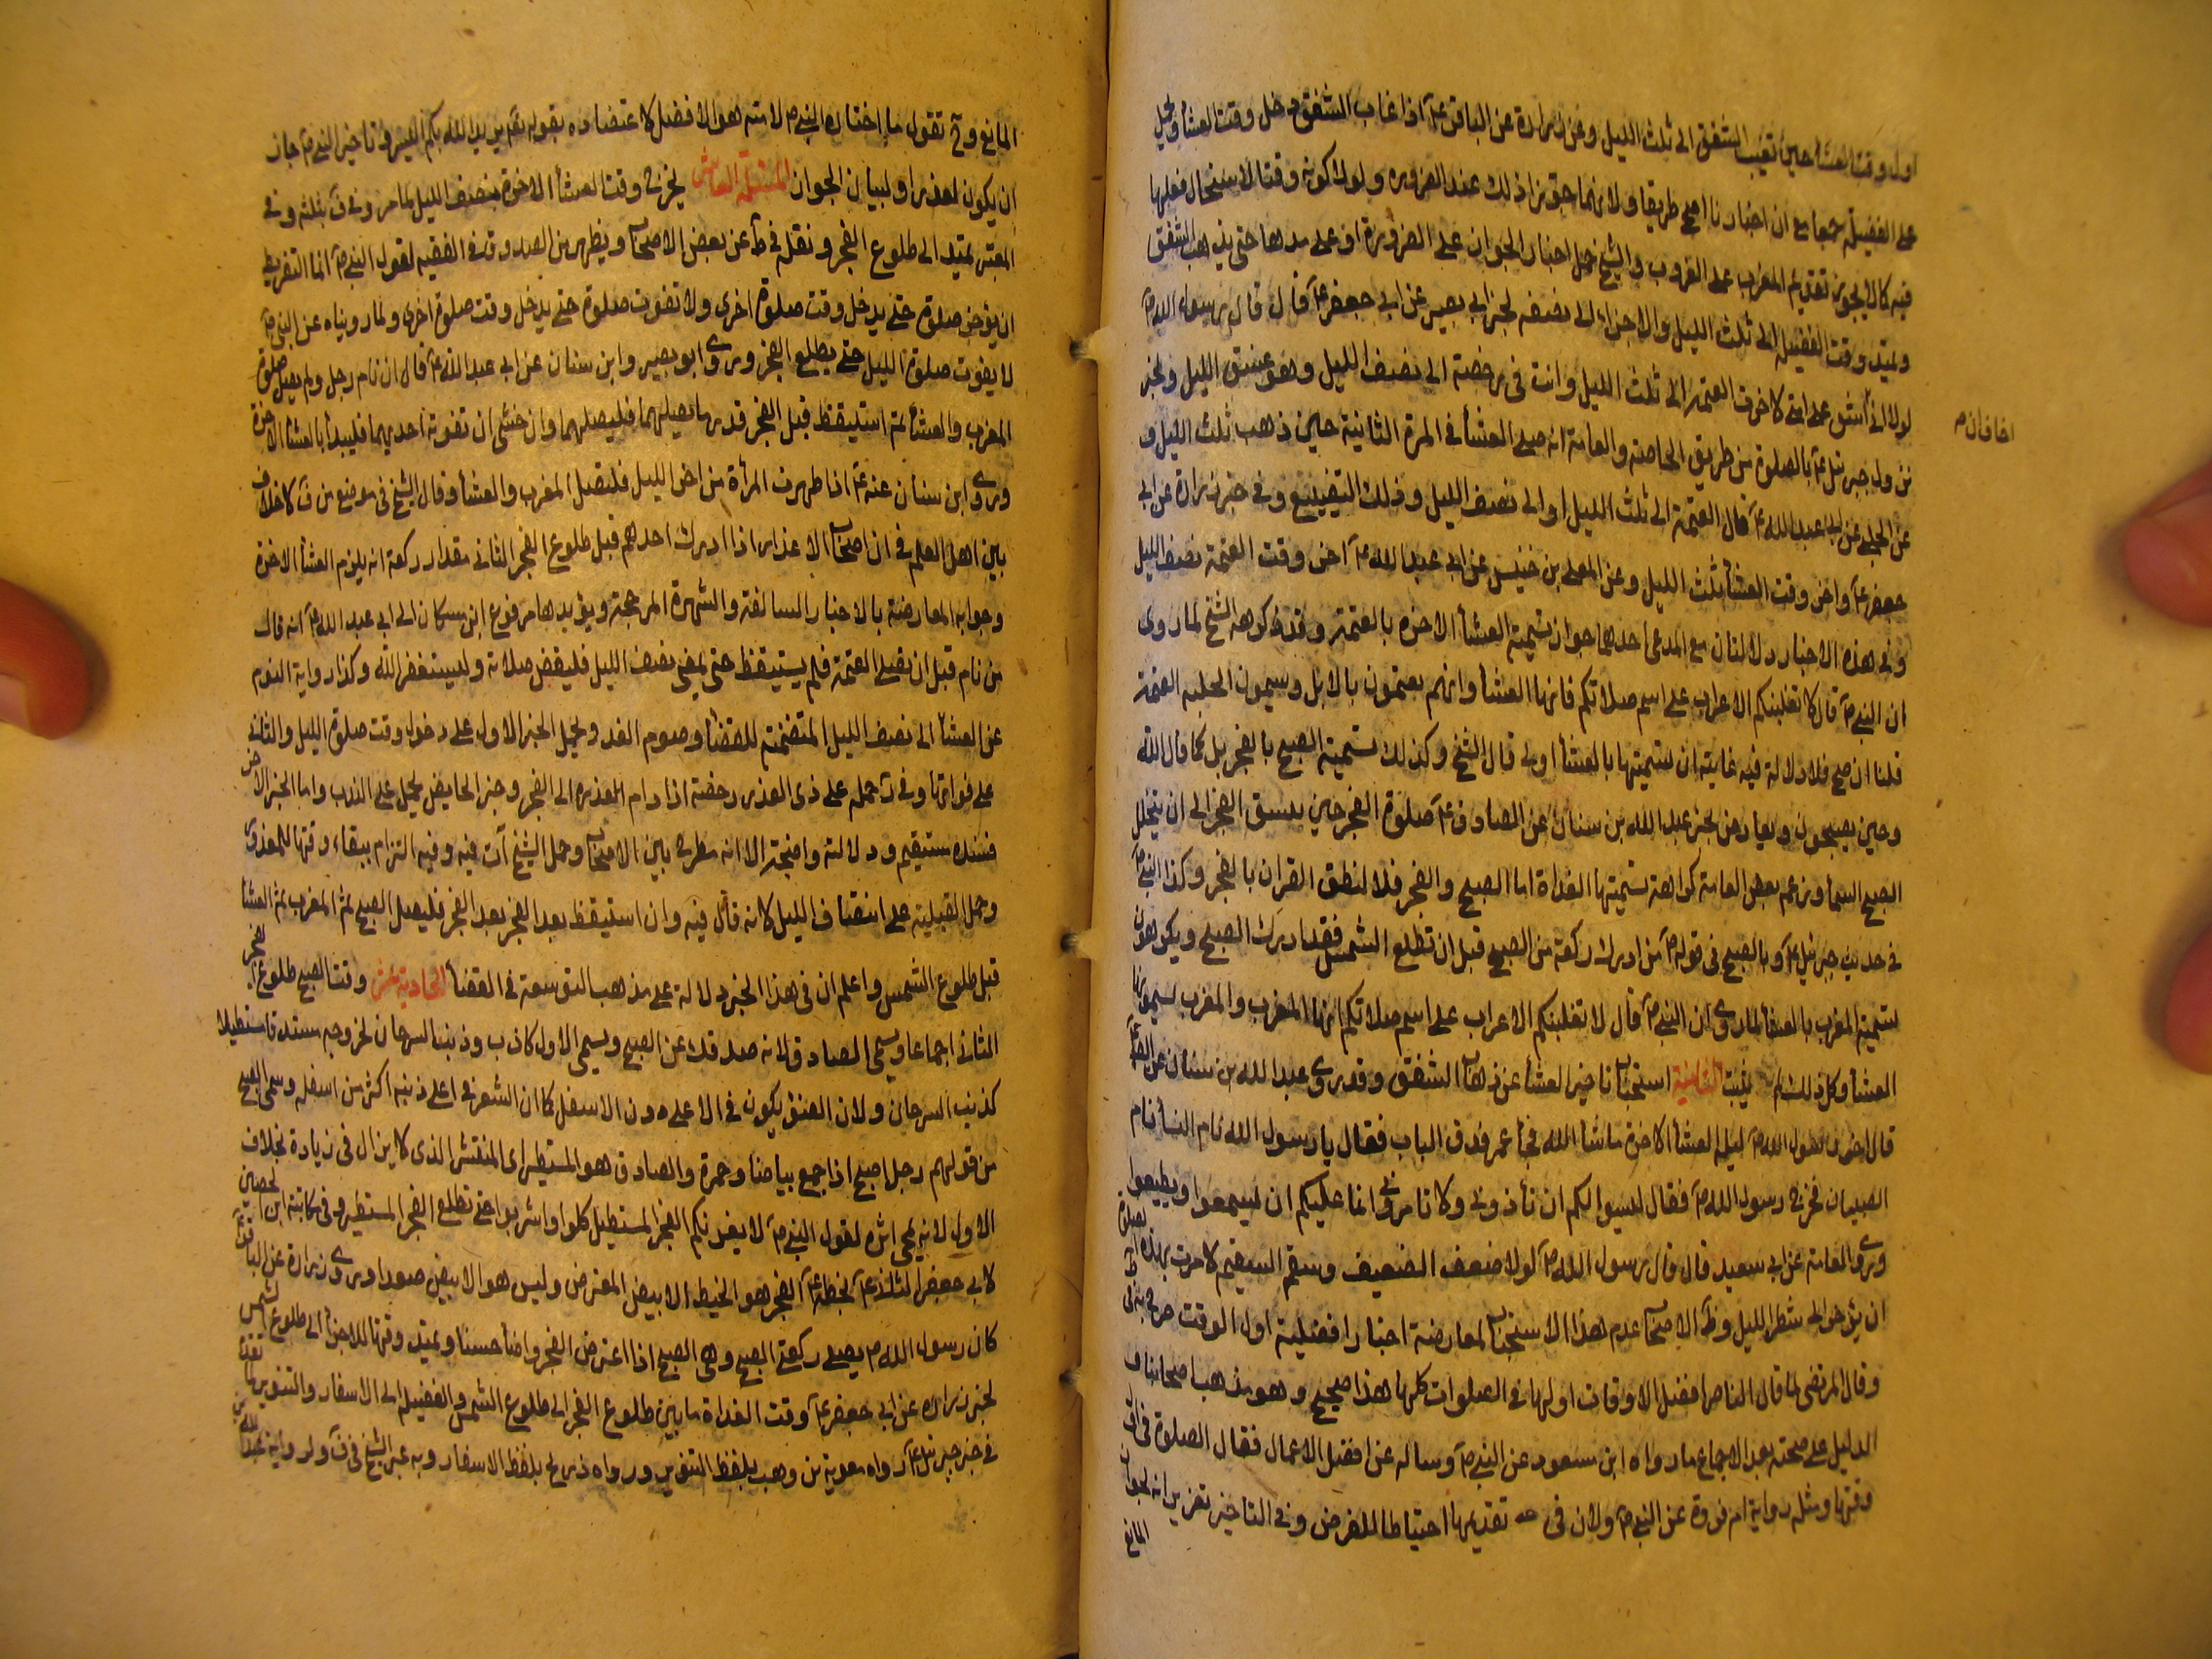 اول وقت العشاء حين تغيب الشفق الى ثلث الليل وعن زرارة عن الباقر ع اذا غاب الشفق دخل وقت العشاء فيحمل
على الفضيلة جمعا مع ان اخبارنا اصح طريقا ولانهما جوزا ذلك عند الضرورة ولولا كونه وقتا لاستحال فعلها
فيه كما لا يجوز تقديم المغرب على الغروب والشيخ حمل اخبار الجواز على الضرورة او على مدها حتى يذهب الشفق
ويمتد وقت الفضيلة الى ثلث الليل والاجزاء الى نصفه لخبر ابي بصير عن ابي جعفر ع قال قال رسول الله ص
لولا اني اشق على امتي لاخرت العتمة الى ثلث الليل وانت في رخصة الى نصف الليل وهو غسق الليل ولخبر
نزول جبرئيل ع بالصلوة من طريق الخاصة والعامة انه صلى العشاء في المرة الثانية حين ذهب ثلث الليل و
عن الحلبي عن ابي عبد الله ع قال العتمة الى ثلث الليل او الى نصف الليل وذلك التضييع وفي خبر زرارة عن ابي
جعفر ع واخر وقت العشاء ثلث الليل وعن المعلى بن خنيس عن ابي عبد الله ع اخر وقت العتمة نصف الليل
وفي هذه الاخبار دلالتان مع المدعى احدهما جواز تسمية العشاء الاخرة بالعتمة وقد كرهه الشيخ لما روى
ان النبي ص قال لا تغلبنكم الاعراب على اسم صلاتكم فانها العشاء وانهم يعتمون بالابل ويسمون الحلبة العتمة
قلنا ان صح فلا دلالة فيه غايته ان تسميتها بالعشاء اولى قال الشيخ وكذلك تسمية الصبح بالفجر بل كما قال الله
وحين يصبحون ويعارض بخبر عبد الله بن سنان عن الصادق ع صلوة الفجر حين ينشق الفجر الى ان يتجلل
الصبح السماء وزعم بعض العامة كراهة تسميتها الغداة اما الصبح والفجر فلا لنطق القران بالفجر وكذا النبي ص
في حديث جبرئيل ع وبالصبح في قوله ص من ادرك ركعة من الصبح قبل ان تطلع الشمس فقد ادرك الصبح ويكرهون
تسمية المغرب بالعشاء لما روى ان النبي ص قال لا تغلبنكم الاعراب على اسم صلاتكم انها المغرب والمغرب يسمونها
العشاء وكل ذلك لم يثبت الثانية استحباب تاخير العشاء عن ذهاب الشفق وقد روى عبد الله بن سنان عن الصادق ع
قال اخر رسول الله ص ليلة العشاء الاخرة ما شاء الله فجاء عمر فدق الباب فقال يا رسول الله نام النساء نام
الصبيان فخرج رسول الله ص فقال ليس لكم ان تؤذوني ولا تامروني وانما عليكم ان تسمعوا وتطيعوا
وروى العامة عن ابي سعيد قال قال رسول الله ص لولا ضعف الضعيف وسقم السقيم لامرت بهذه الصلوة
ان يؤخر الى شطر الليل وظ الاصحاب عدم هذا الاستحباب لمعارضة اخبار افضلية اول الوقت صرح به في
وقال المرتضى لما قال الناصر افضل الاوقات اولها في الصلوات كلها هذا صحيح وهو مذهب اصحابنا و
الدليل على صحته بعد الاجماع ما رواه ابن مسعود عن النبي ص وساله عن افضل الاعمال فقال الصلوة في اول
وقتها ومثله رواية ام فروة عن النبي ص ولان في تقديمها احتياطا للفرض وفي التاخير تغريرا به لجواز
المانع
المانع وح نقول ما اختاره النبي ص لامته هو الافضل لاعتضاده بقوله تعم يريد الله بكم اليسر وتاخير النبي ص جاز
ان يكون لعذر او لبيان الجواز المسئلة العاشرة يخرج وقت العشاء الاخرة بنصف الليل لما مر وفي ف بثلثه وفي
المعتبر يمتد الى طلوع الفجر ونقله في ط عن بعض الاصحاب ويظهر من الصدوق في الفقيه لقول النبي ص انما التفريط
ان يؤخر صلوة حتى يدخل وقت صلوة اخرى ولا تفوت صلوة حتى يدخل وقت صلوة اخرى ولما رويناه عن النبي ص
لا يفوت صلوة الليل حتى يطلع الفجر وروى ابو بصير وابن سنان عن ابي عبد الله ع قال ان نام رجل ولم يصل صلوة
المغرب والعشاء ثم استيقظ قبل الفجر قدر ما يصليهما فليصلهما وان خشى ان تفوته احديهما فليبدأ بالعشاء الاخرة
وروى ابن سنان عنه ع اذا طهرت المرأة من اخر الليل فلتصل المغرب والعشاء وقال الشيخ في موضع من ف لا خلاف
بين اهل العلم في ان اصحاب الاعذار اذا ادرك احدهم قبل طلوع الفجر الثاني مقدار ركعة انه يلزم العشاء الاخرة
وجوابه المعارضة بالاخبار السالفة والشهرة المرجحة ويؤيدها مرفوع ابن مسكان الى ابي عبد الله ع انه قال
من نام قبل ان يصلي العتمة فلم يستيقظ حتى يمضي نصف الليل فليقض صلاته وليستغفر الله وكذا رواية النوم
عن العشاء الى نصف الليل المتضمنة للقضاء وصوم الغد ويحمل الخبر الاول على دخول وقت صلوة الليل والثاني
على فواتها وفي حمله على ذي العذر رخصة اذا دام العذر الى الفجر وخبر الحايض يحمل على الندب واما الخبر الاخر
فسنده مستقيم ودلالته واضحة الا انه مطرح بين الاصحاب وحمل الشيخ آت فيه وفيه التزام ببقاء وقتها للمعذور
وحمل القبلية على انتصاف الليل لانه قال فيه وان استيقظ بعد الفجر فليصل الصبح ثم المغرب ثم العشاء
قبل طلوع الشمس واعلم ان في هذا الخبر دلالة على مذهب التوسعة في القضاء الحادية عشر وقت الصبح طلوع الفجر
الثاني اجماعا ويسمى الصادق لانه صدقك عن الصبح ويسمى الاول كاذب وذنب السرحان لخروجه مستدقا مستطيلا
كذنب السرحان ولان الضوء يكون في الاعلى دون الاسفل كما ان الشعر في اعلى ذنبه اكثر من اسفله وسمى الصبح
من قولهم رجل اصبح اذا جمع بياضا وحمرة والصادق هو المستطير اى المنتشر الذي لا يزال في زيادة بخلاف
الاول لانه يمحى اثره لقول النبي ص لا يغرنكم الفجر المستطيل كلوا واشربوا حتى تطلع الفجر المستطير وفي مكاتبة ابن الحصين
لابي جعفر الثاني ع بخطه ع الفجر هو الخيط الابيض المعترض وليس هو الابيض صعدا وروى زرارة عن الباقر ع
كان رسول الله ص يصلي ركعتي الصبح وهي الصبح اذا اعترض الفجر واضاء حسنا ويمتد وقتها للاجزاء الى طلوع الشمس
لخبر زرارة عن ابي جعفر ع وقت الغداة ما بين طلوع الفجر الى طلوع الشمس والفضيلة الى الاسفار والتنوير لما تقدم
في خبر جبرئيل ع رواه معوية بن وهب بلفظ التنوير ورواه ذريح بلفظ الاسفار وبه عبر الشيخ في ف ولرواية عبد الله بن